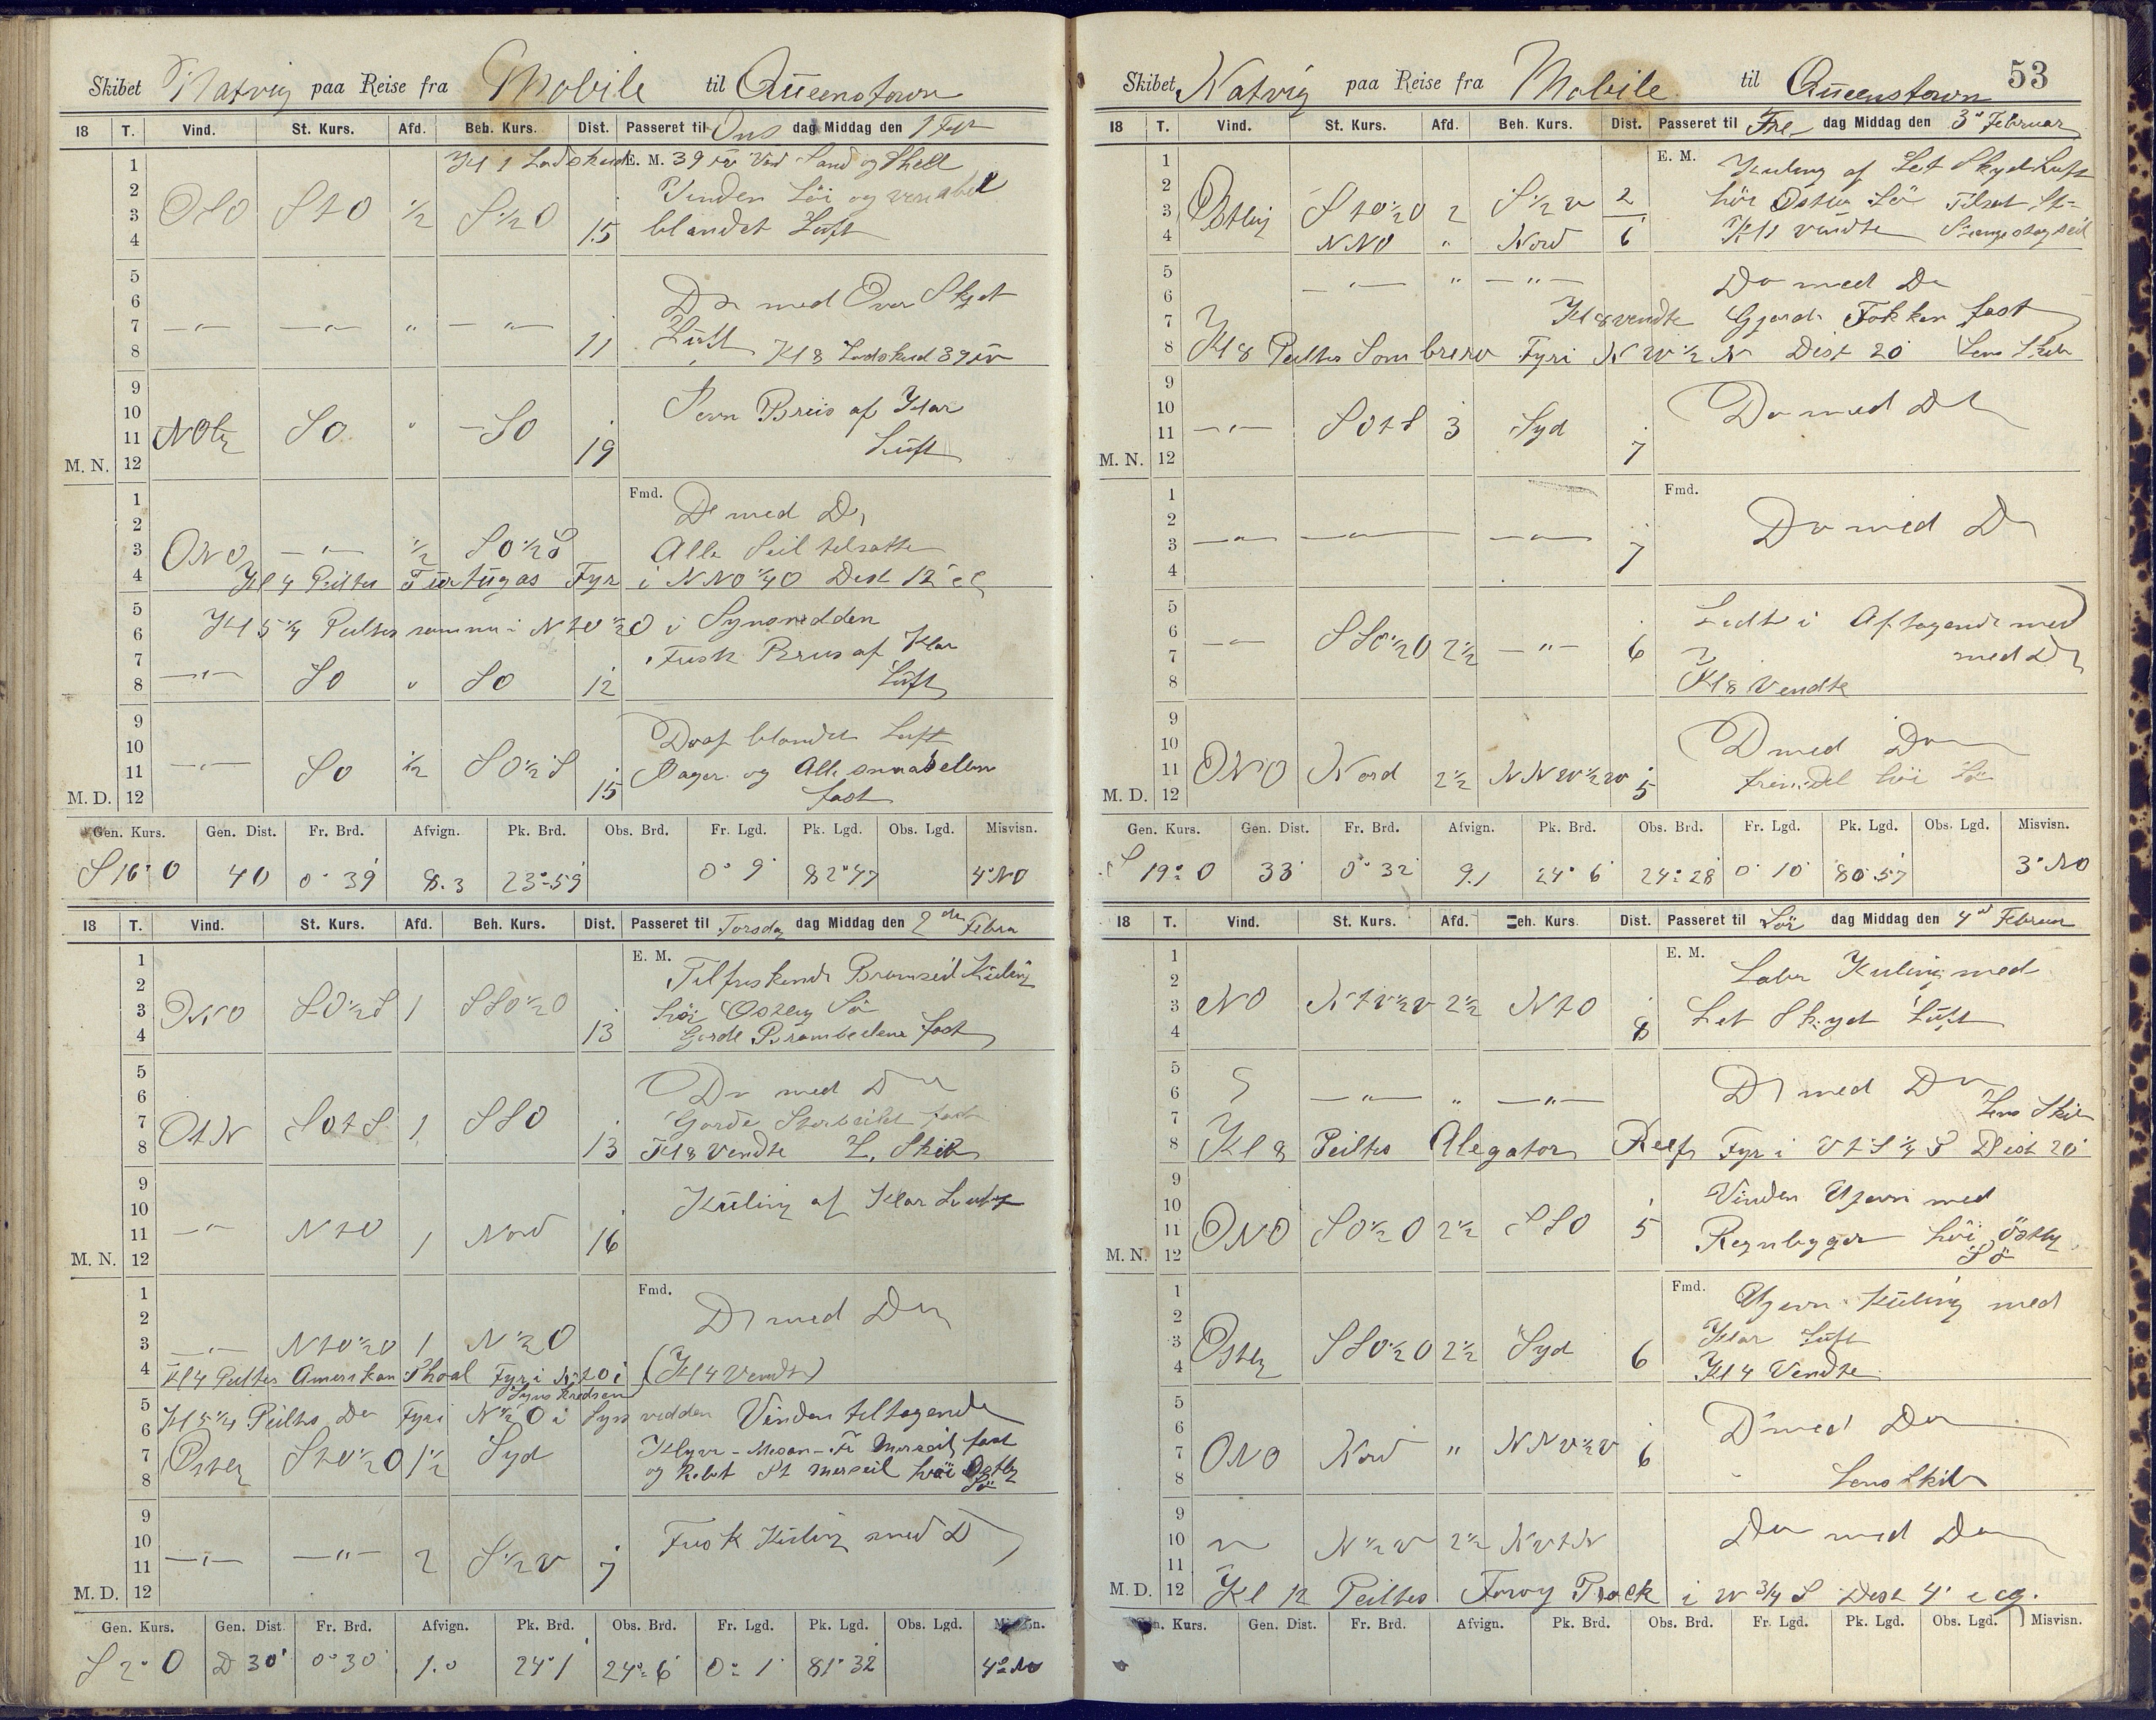 Skibet Natvig paa Reise fra Mobile til Queenstown
18 T. Vind. St. Kurs. Afd. Beh. Kurs. Dist. Passeret til Ons dag Middag den 1 Febr
Kl 1 Lodskud E. M. 39 fv Vid Sand og Shell
1
2 Vinden Löi og variabel
3 OSO StO ½ S½O
4 15 blandet Luft
5
6 Do med Over Skyet
7 —"— —"— " —"— Luft
8 11 Kl 8 Lodskud 39 fv
9
10 Jevn Bris af Klar
11 NOly SO " SO Luft
M. N. 12 19
1 Fmd. Do med Do
2
3 ONO —"— ½ SO½S Alle Seil tilsatte
4 Kl 4 Peiltes Turtugas Fyr i NNO¼O Dist 12'
5
6 Kl 5¼ Peiltes samme i NtO½O i Synsvidden
7 Frisk Bris af Klar
8 —"— SO " SO 12 Luft
9 Do af blandet Luft
10
11 —"— SO ½ SO½S Røger og Alle
M. D. 12 15 fast
Gen. Kurs. Gen. Dist. Fr. Brd. Afvign. Pk. Brd. Obs. Brd. Fr. Lgd. Pk. Lgd. Obs. Lgd. Misvisn.
S 16° O 40 0° 39' 8.3 23° 59' 0° 9' 82° 47 4° NO
18 T. Vind. St. Kurs. Afd. Beh. Kurs. Dist. Passeret til Torsdag dag Middag den 2den Febru
1 E. M. Tilfriskende Bramseil Kuling
2
3 ONO SO½S 1 SSO½O höi Østlig Sö
4 13 Gjorde Bramseilene fast
5
6 Do med Do
7 OtN SOtS 1 SSO Gjorde Storseilet fast
8 13 Kl 8 Vendte L. Skib
9
10 Kuling af Klar Luft
11 —"— NtO 1 Nord
M. N. 12 16
1 Fmd.
2 Do med Do
3 —"— NtO½O 1 N½O
4 Kl 4 Peiltes Amerikan Shoal Fyr i NtO i Synskredsen (Kl 4 Vendte)
5 Kl 5¼ Peiltes Do Fyr i N½O i Synsvidden Vinden tiltagende
6
7 Østlig StO½O 1½ Syd Klyver - Mesan - Fr Merseil fast
8 og Rebet St Merseil höi Østlig Sö
9
10 Frisk Kuling med Do
11 —"— —"— 2 S½V
M. D. 12 7
Gen. Kurs. Gen. Dist. Fr. Brd. Afvign. Pk. Brd. Obs. Brd. Fr. Lgd. Pk. Lgd. Obs. Lgd. Misvisn.
S 2° O D 30' 0° 30' 1.0 24° 1' 24° 6' 0° 1' 81° 32 4° NO
Skibet Natvig paa Reise fra Mobile til Queenstown 53
18 T. Vind. St. Kurs. Afd. Beh. Kurs. Dist. Passeret til Fre dag Middag den 3die Februar
1 E. M. Kuling af Let Skyd Luft
2
3 Østlig StO½O 2 S½V 2 höi Østlig Sö Tilsat St-
4 NNO " Nord 6 Kl 1 vendte Stængestagseil
5
6 —"— " —"— Do med Do
7 Kl 8 vendte Gjorde Fokken fast
8 Kl 8 Peiltes Sombrero Fyr i NW½N Dist 20' Lens Skib
9
10 Do med Do
11 —"— SOtS 3 Syd
M. N. 12 7
1 Fmd.
2 Do med Do
3 —"— —"— —"—
4 7
5 Lidt i Aftagende med
6
7 —"— SSO½O 2½ —"— 6 med Do
8 Kl 8 Vendte
9
10 Do med Do
11 ONO Nord 2½ NNW½W 5 höi Sö
M. D. 12
Gen. Kurs. Gen. Dist. Fr. Brd. Afvign. Pk. Brd. Obs. Brd. Fr. Lgd. Pk. Lgd. Obs. Lgd. Misvisn.
S 19° O 33' 0° 32' 9.1 24° 6' 24° 28' 0° 10' 80° 57' 3° NO
18 T. Vind. St. Kurs. Afd. Beh. Kurs. Dist. Passeret til Lör dag Middag den 4de Februar
1 E. M. Laber Kuling med
2
3 NO NtV½V 2½ NtO Let Skyet Luft
4 8
5
6 —"— " —"— Do med Do
7 Lens Skib
8 Kl 8 Peiltes Alegator Reef Fyr i VtS¼S Dist 20'
9
10 Vinden Ujevn med
11 ONO SO½O 2½ SSO 5 Regnbyger höi Östlig
M. N. 12 Sö
1 Fmd. Ujevn Kuling med
2
3 Østlig SSO½O 2½ Syd 6 Klar Luft
4 Kl 4 Vendte
5
6 Do med Do
7 ONO Nord " NNV½V 6
8 Lens Skib
9
10 N½W 2½ NVtN Do med Do
11
M. D. 12 Kl 12 Peiltes Fowy Rock i W¾S Dist 4'
Gen. Kurs. Gen. Dist. Fr. Brd. Afvign. Pk. Brd. Obs. Brd. Fr. Lgd. Pk. Lgd. Obs. Lgd. Misvisn.